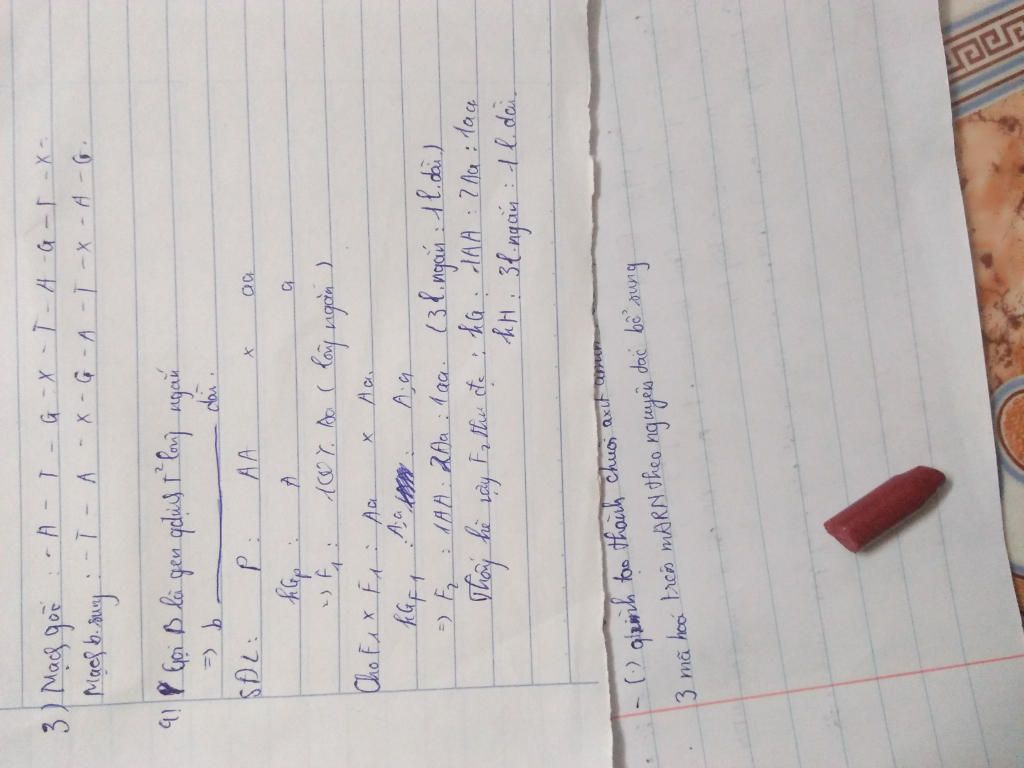 3) Mạch gốc : - A - T - G - X - T - A - G - T - X -
Mạch b.sung : - T - A - X - G - A - T - X - A - G.
4) Gọi B là gen qđịnh T² lông ngắn
=> b dài.
SĐL: P : AA x aa
hGp : A a
=> F1 : 100% Aa ( lông ngắn )
Cho F1 x F1 : Aa x Aa.
hGF1 : A;a A;a
=> F2 : 1AA : 2Aa : 1aa. (3 l.ngắn : 1 l.dài)
Thấy hệ vậy F2 thu đc : kG : 1AA : 2Aa : 1aa
kH : 3 l.ngắn : 1 l.dài.
- (.) tạo thành chuỗi axit amin
3 mã hoá trên mARN theo nguyên tắc bổ sung